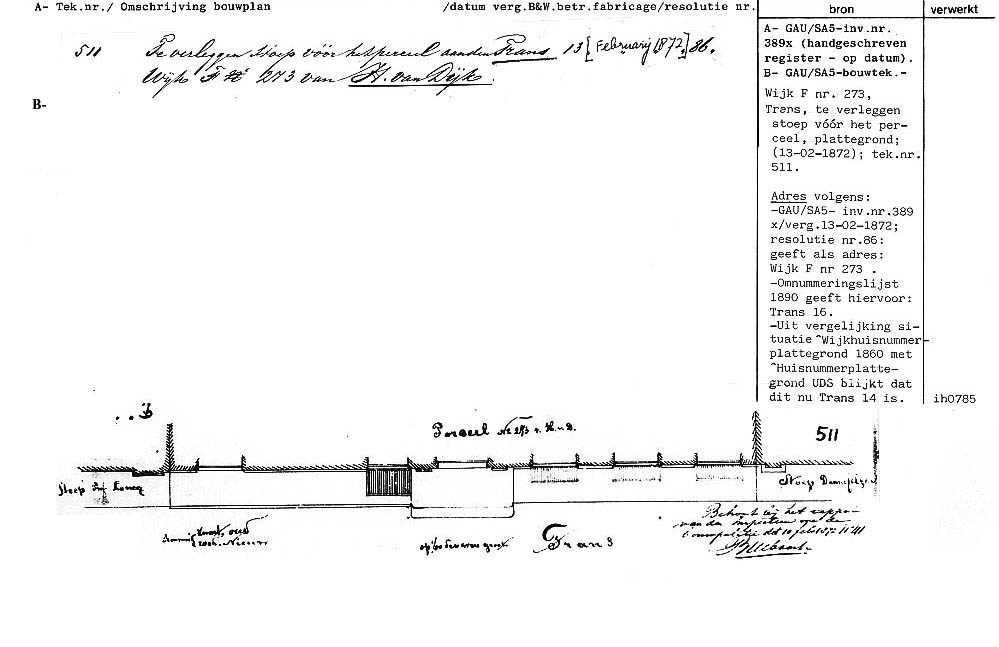 A- Tek.nr./ Omschrijving bouwplan /datum verg.B&W.betr.fabricage/resolutie nr.
bron
verwerkt
511 Te verleggen stoep vóór het perceel aan den Trans 13 [Februarij 1872.] 86.
Wijk F. № 273 van H. van Dijk.
B-
A- GAU/SA5-inv.nr.
389x (handgeschreven
register - op datum).
B- GAU/SA5-bouwtek.-
Wijk F nr. 273,
Trans, te verleggen
stoep vóór het per-
ceel, plattegrond;
(13-02-1872); tek.nr.
511.
Adres volgens:
-GAU/SA5- inv.nr.389
x/verg.13-02-1872;
resolutie nr.86:
geeft als adres:
Wijk F nr 273 .
-Omnummeringslijst
1890 geeft hiervoor:
Trans 16.
-Uit vergelijking si-
tuatie ^Wijkhuisnummer-
plattegrond 1860 met
^Huisnummerplatte-
grond UDS blijkt dat
dit nu Trans 14 is.
ih0785
B
Perceel № 273 v. H. v. D.
511
Stoep
Stoep
Trans
Behoort bij het rappor
van den